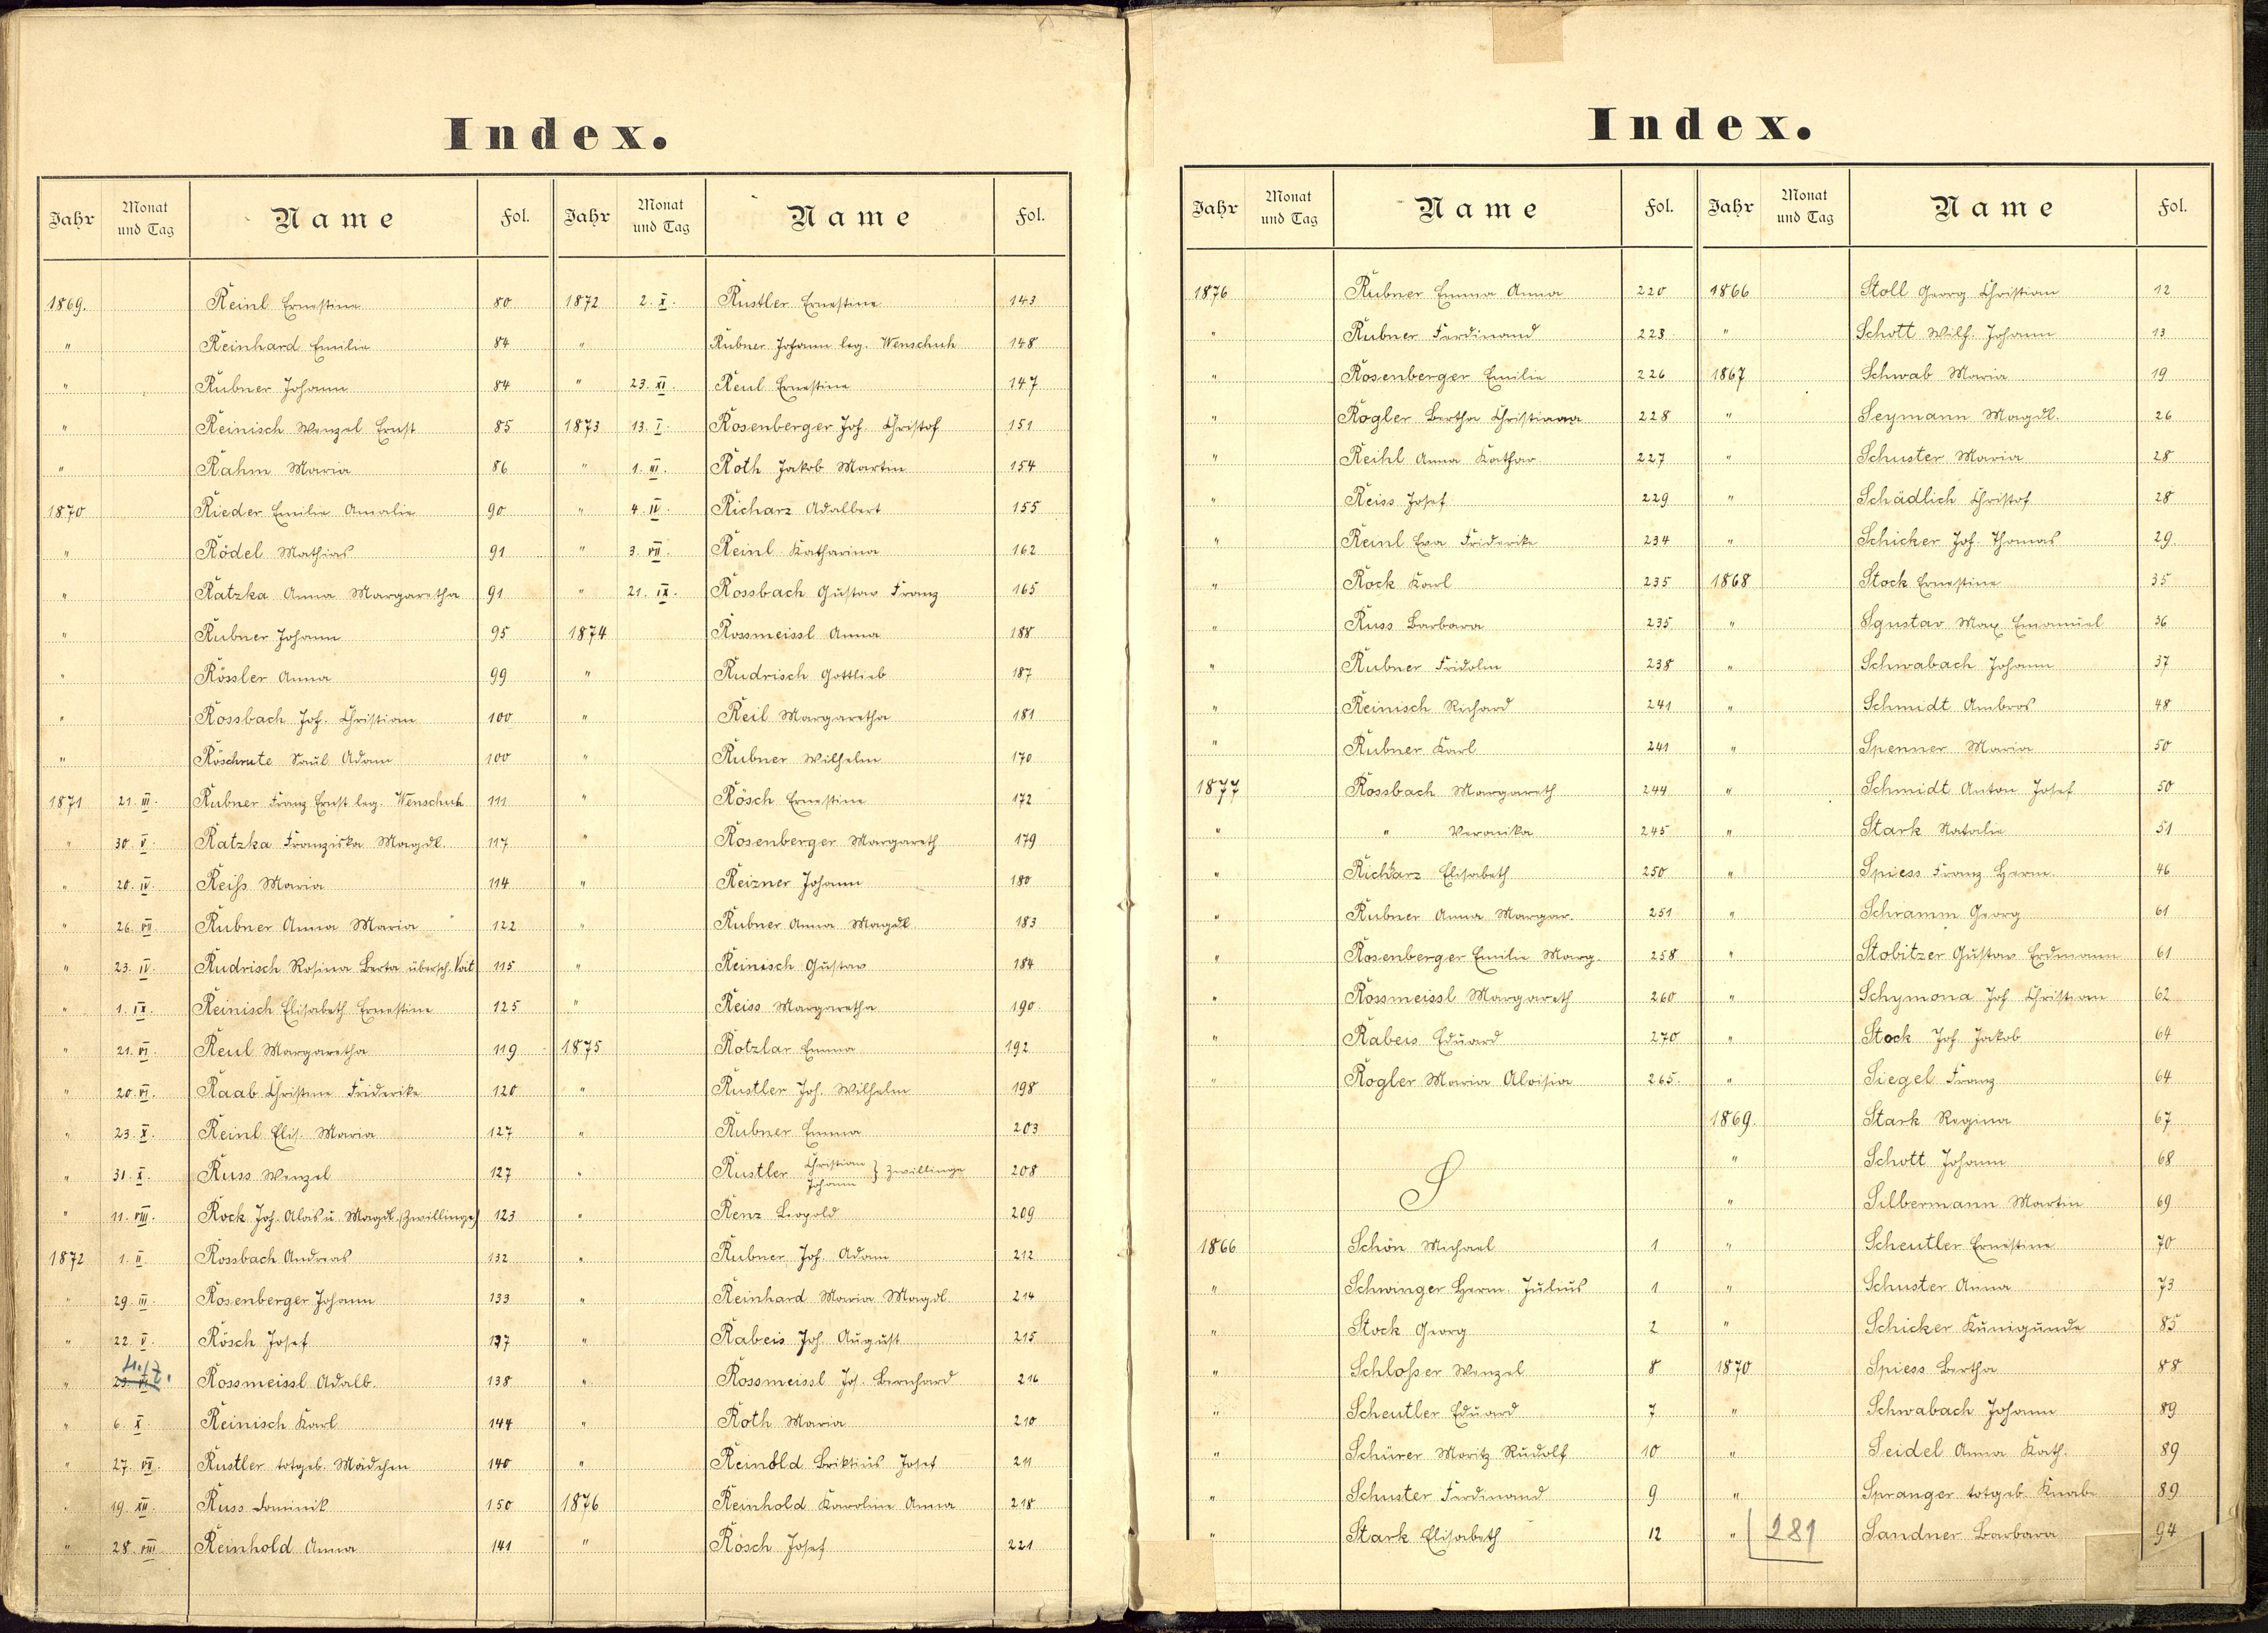 Index.
Jahr Monat und Tag Name Fol. Jahr Monat und Tag Name Fol.
1869. Reinl Ernestine 80
" Reinhard Emilie 84
" Rubner Johann 84
" Reinisch Wenzel Ernst 85
" Rahm Maria 86
1870 Rieder Emilie Amalie 90
" Rödel Mathias 91
" Ratzka Anna Margaretha 91
" Rubner Johann 95
" Rössler Anna 99
" Rossbach Joh. Christian 100
" Röschrute Paul Adam 100
1871 21. III. Rubner Franz Ernst leg. Wenschuh 111
" 30. V. Ratzka Franziska Magdl. 117
" 20. IV. Reiſs Maria 114
" 26. VII. Rubner Anna Maria 122
" 23. IV. Rudrisch Rosina Berta übersch. Voit 115
" 1. IX. Reinisch Elisabeth Ernestine 125
" 21. VI. Reul Margaretha 119
" 20. VI. Raab Christine Friderike 120
" 23. X. Reinl Elis. Maria 127
" 31. X. Russ Wenzel 127
" 11. VIII. Rock Joh. Alois u. Magdl. (Zwillinge) 123
1872 1. II. Rossbach Andreas 132
" 29. III. Rosenberger Johann 133
" 22. V. Rösch Josef 137
" Rossmeissl Adalb. 138
" 6. X. Reinisch Karl 144
" 27. VII. Rustler totgeb. Mädchen 140
" 19. XII. Russ Dominik 150
" 28. VIII. Reinhold Anna 141
1872 2. X. Rustler Ernestine 143
" Rubner Johann leg. Wenschuh 148
" 23. XI. Reul Ernestine 147
1873 13. I. Rosenberger Joh. Christof 151
" 1. III. Roth Jakob Martin 154
" 4. IV. Richarz Adalbert 155
" 3. VII. Reinl Katharina 162
" 21. IX. Rossbach Gustav Franz 165
1874 Rossmeissl Anna 188
" Rudrisch Gottlieb 187
" Reil Margaretha 181
" Rubner Wilhelm 170
" Rösch Ernestine 172
" Rosenberger Margareth 179
" Reizner Johann 180
" Rubner Anna Magdl. 183
" Reinisch Gustav 184
" Reiss Margaretha 190
1875 Rotzlar Emma 192
" Rustler Joh. Wilhelm 198
" Rubner Emma 203
" Rustler Christian Johann } Zwillinge 208
" Renz Leopold 209
" Rubner Joh. Adam 212
" Reinhard Maria Magdl. 214
" Rabeis Joh. August 215
" Rossmeissl Joh. Bernhard 216
" Roth Maria 210
" Reinold Briktius Josef 211
1876 Reinhold Karoline Anna 218
" Rösch Josef 221
Index.
Jahr Monat und Tag Name Fol. Jahr Monat und Tag Name Fol.
1876 Rubner Emma Anna 220
" Rubner Ferdinand 223
" Rosenberger Emilie 226
" Rogler Bertha Christiana 228
" Reihl Anna Kathar. 227
" Reiss Josef 229
" Reinl Eva Friderike 234
" Rock Karl 235
" Russ Barbara 235
" Rubner Fridolin 238
" Reinisch Richard 241
" Rubner Karl 241
1877 Rossbach Margareth 244
" " Veronika 245
" Richarz Elisabeth 250
" Rubner Anna Margar. 251
" Rosenberger Emilie Marg. 258
" Rossmeissl Margareth 260
" Rabeis Eduard 270
" Rogler Maria Aloisia 265.
S
1866 Schön Michael 1
" Schwinger Herm. Julius 1
" Stock Georg 2
" Schloſser Wenzel 8
" Scheutler Eduard 7
" Schürer Moritz Rudolf 10
" Schuster Ferdinand 9
" Stark Elisabeth 12
1866 Stoll Georg Christian 12
" Schott Wilh. Johann 13
1867 Schwab Maria 19
" Seymann Magdl. 26
" Schuster Maria 28
" Schädlich Christof 28
" Schicker Joh. Thomas 29.
1868 Stock Ernestine 35
" Sgustav Max Emanuel 36
" Schwabach Johann 37
" Schmidt Ambros 48
" Spenner Maria 50
" Schmidt Anton Josef 50
" Stark Natalie 51
" Spiess Franz Herm. 46
" Schramm Georg 61
" Stobitzer Gustav Erdmann 61
" Schymona Joh. Christian 62
" Stock Joh. Jakob 64
" Siegel Franz 64
1869. Stark Regina 67
" Schott Johann 68
" Silbermann Martin 69
" Scheutler Ernestine 70
" Schuster Anna 73
" Schicker Kunigunde 85
1870 Spiess Bertha 88
" Schwabach Johann 89
" Seidel Anna Kath. 89
" Spranger totgeb. Knabe 89
" 281 Sandner Barbara 94